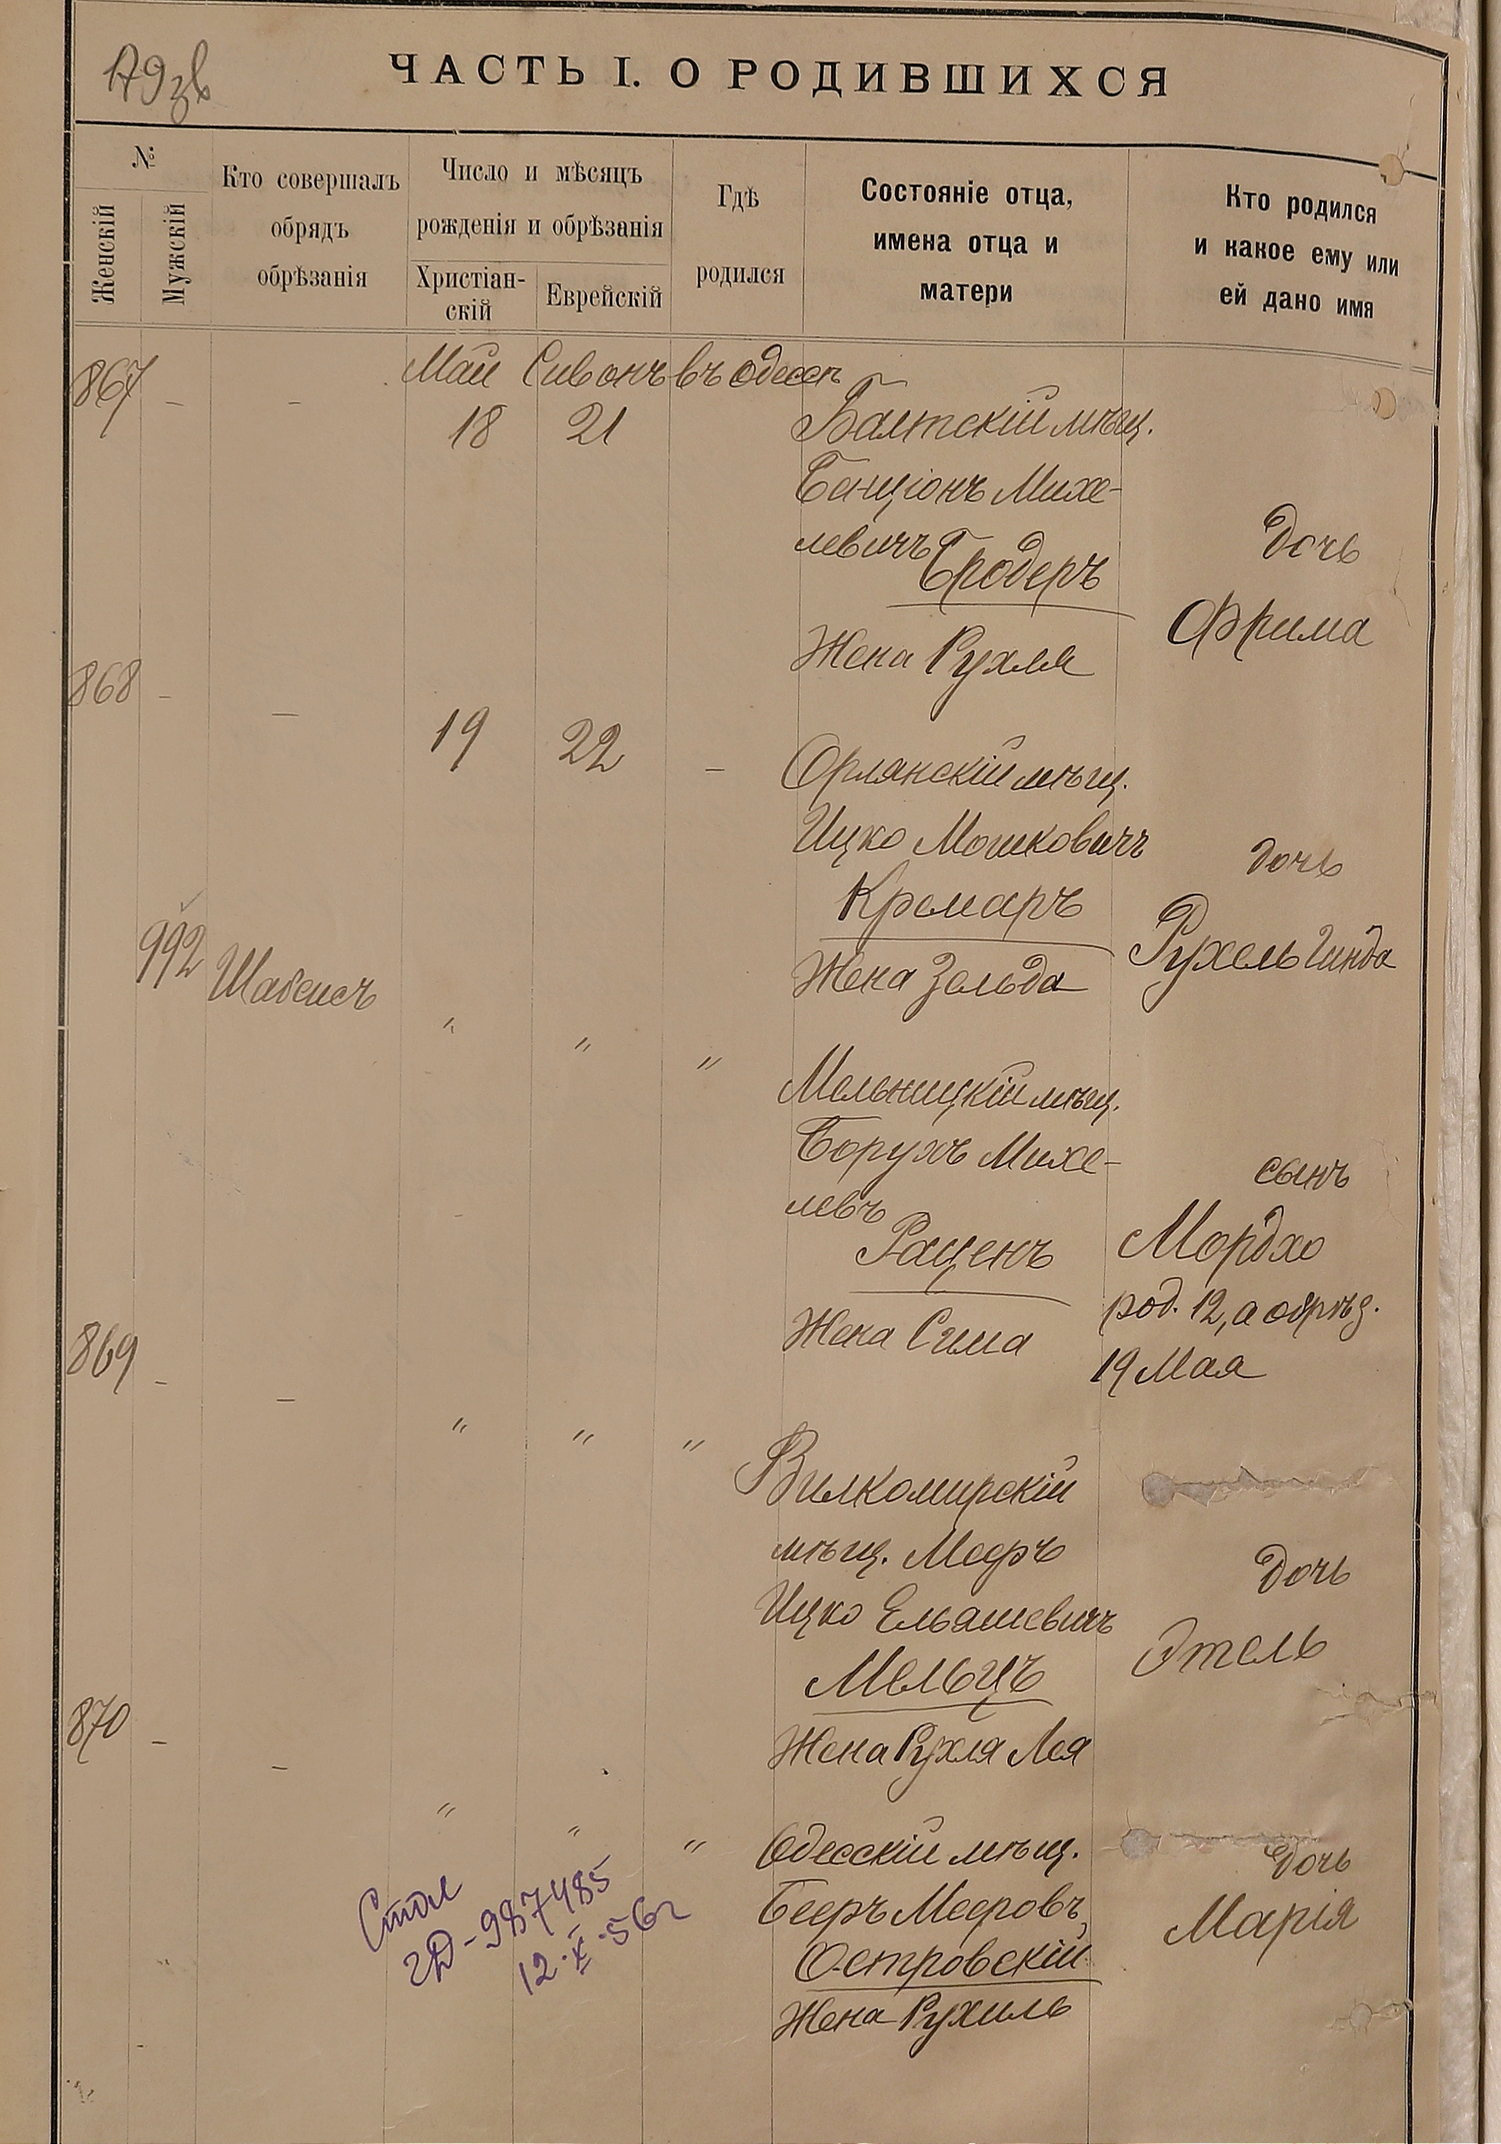 179 зв
ЧАСТЬ I. О РОДИВШИХСЯ
№
Женскій
Мужскій
Кто совершалъ
обрядъ
обрѣзанія
Число и мѣсяцъ
рожденія и обрѣзанія
Христіан-
скій
Еврейскій
Гдѣ
родился
Состояніе отца,
имена отца и
матери
Кто родился
и какое ему или
ей дано имя
867 – – Май Сивонъ въ Одессѣ
18 21 Балтскій мѣщ.
Бенціонъ Михе-
левичъ
Бродеръ
Жена Рухля
Дочь
Фрима
868 – – 19 22 – Орлянскій мѣщ.
Ицко Мошковичъ
Кремаръ
Жена Зельда
дочь
Рухель Гинда
992 Шабсисъ " " " Мельницкій мѣщ.
Борухъ Михе-
левъ
Раценъ
Жена Сима
сынъ
Мордхо
род. 12, а обрѣз.
19 Мая
869 – – " " " Вилкомирскій
мѣщ. Меръ
Ицко Ельяшевичъ
Мельцъ
Жена Рухля Лея
Дочь
Этель
870 – – " " " Одесскій мѣщ.
Бееръ Мееровъ
Островскій
Жена Рухиль
Дочь
Марія
ГД-987485
12.X.56г